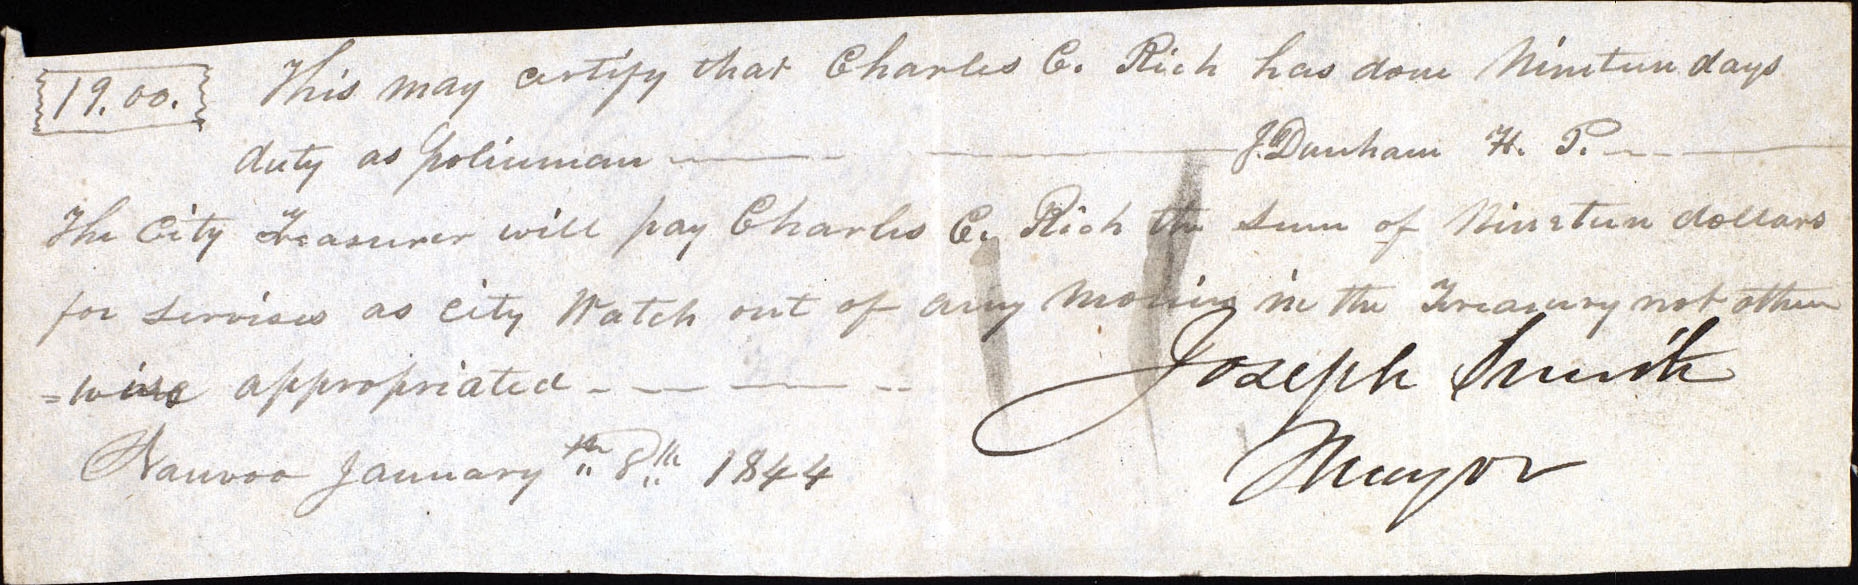 19.00. This may certify that Charles C. Rich has done Nineteen days
duty as policeman J. Dunham H. P.
The City Treasurer will pay Charles C. Rich the sum of Nineteen dollars
for servises as City Watch out of any monies in the Treasury not other
=wise appropriated
Joseph Smith
Mayor
Nauvoo January th 8th 1844